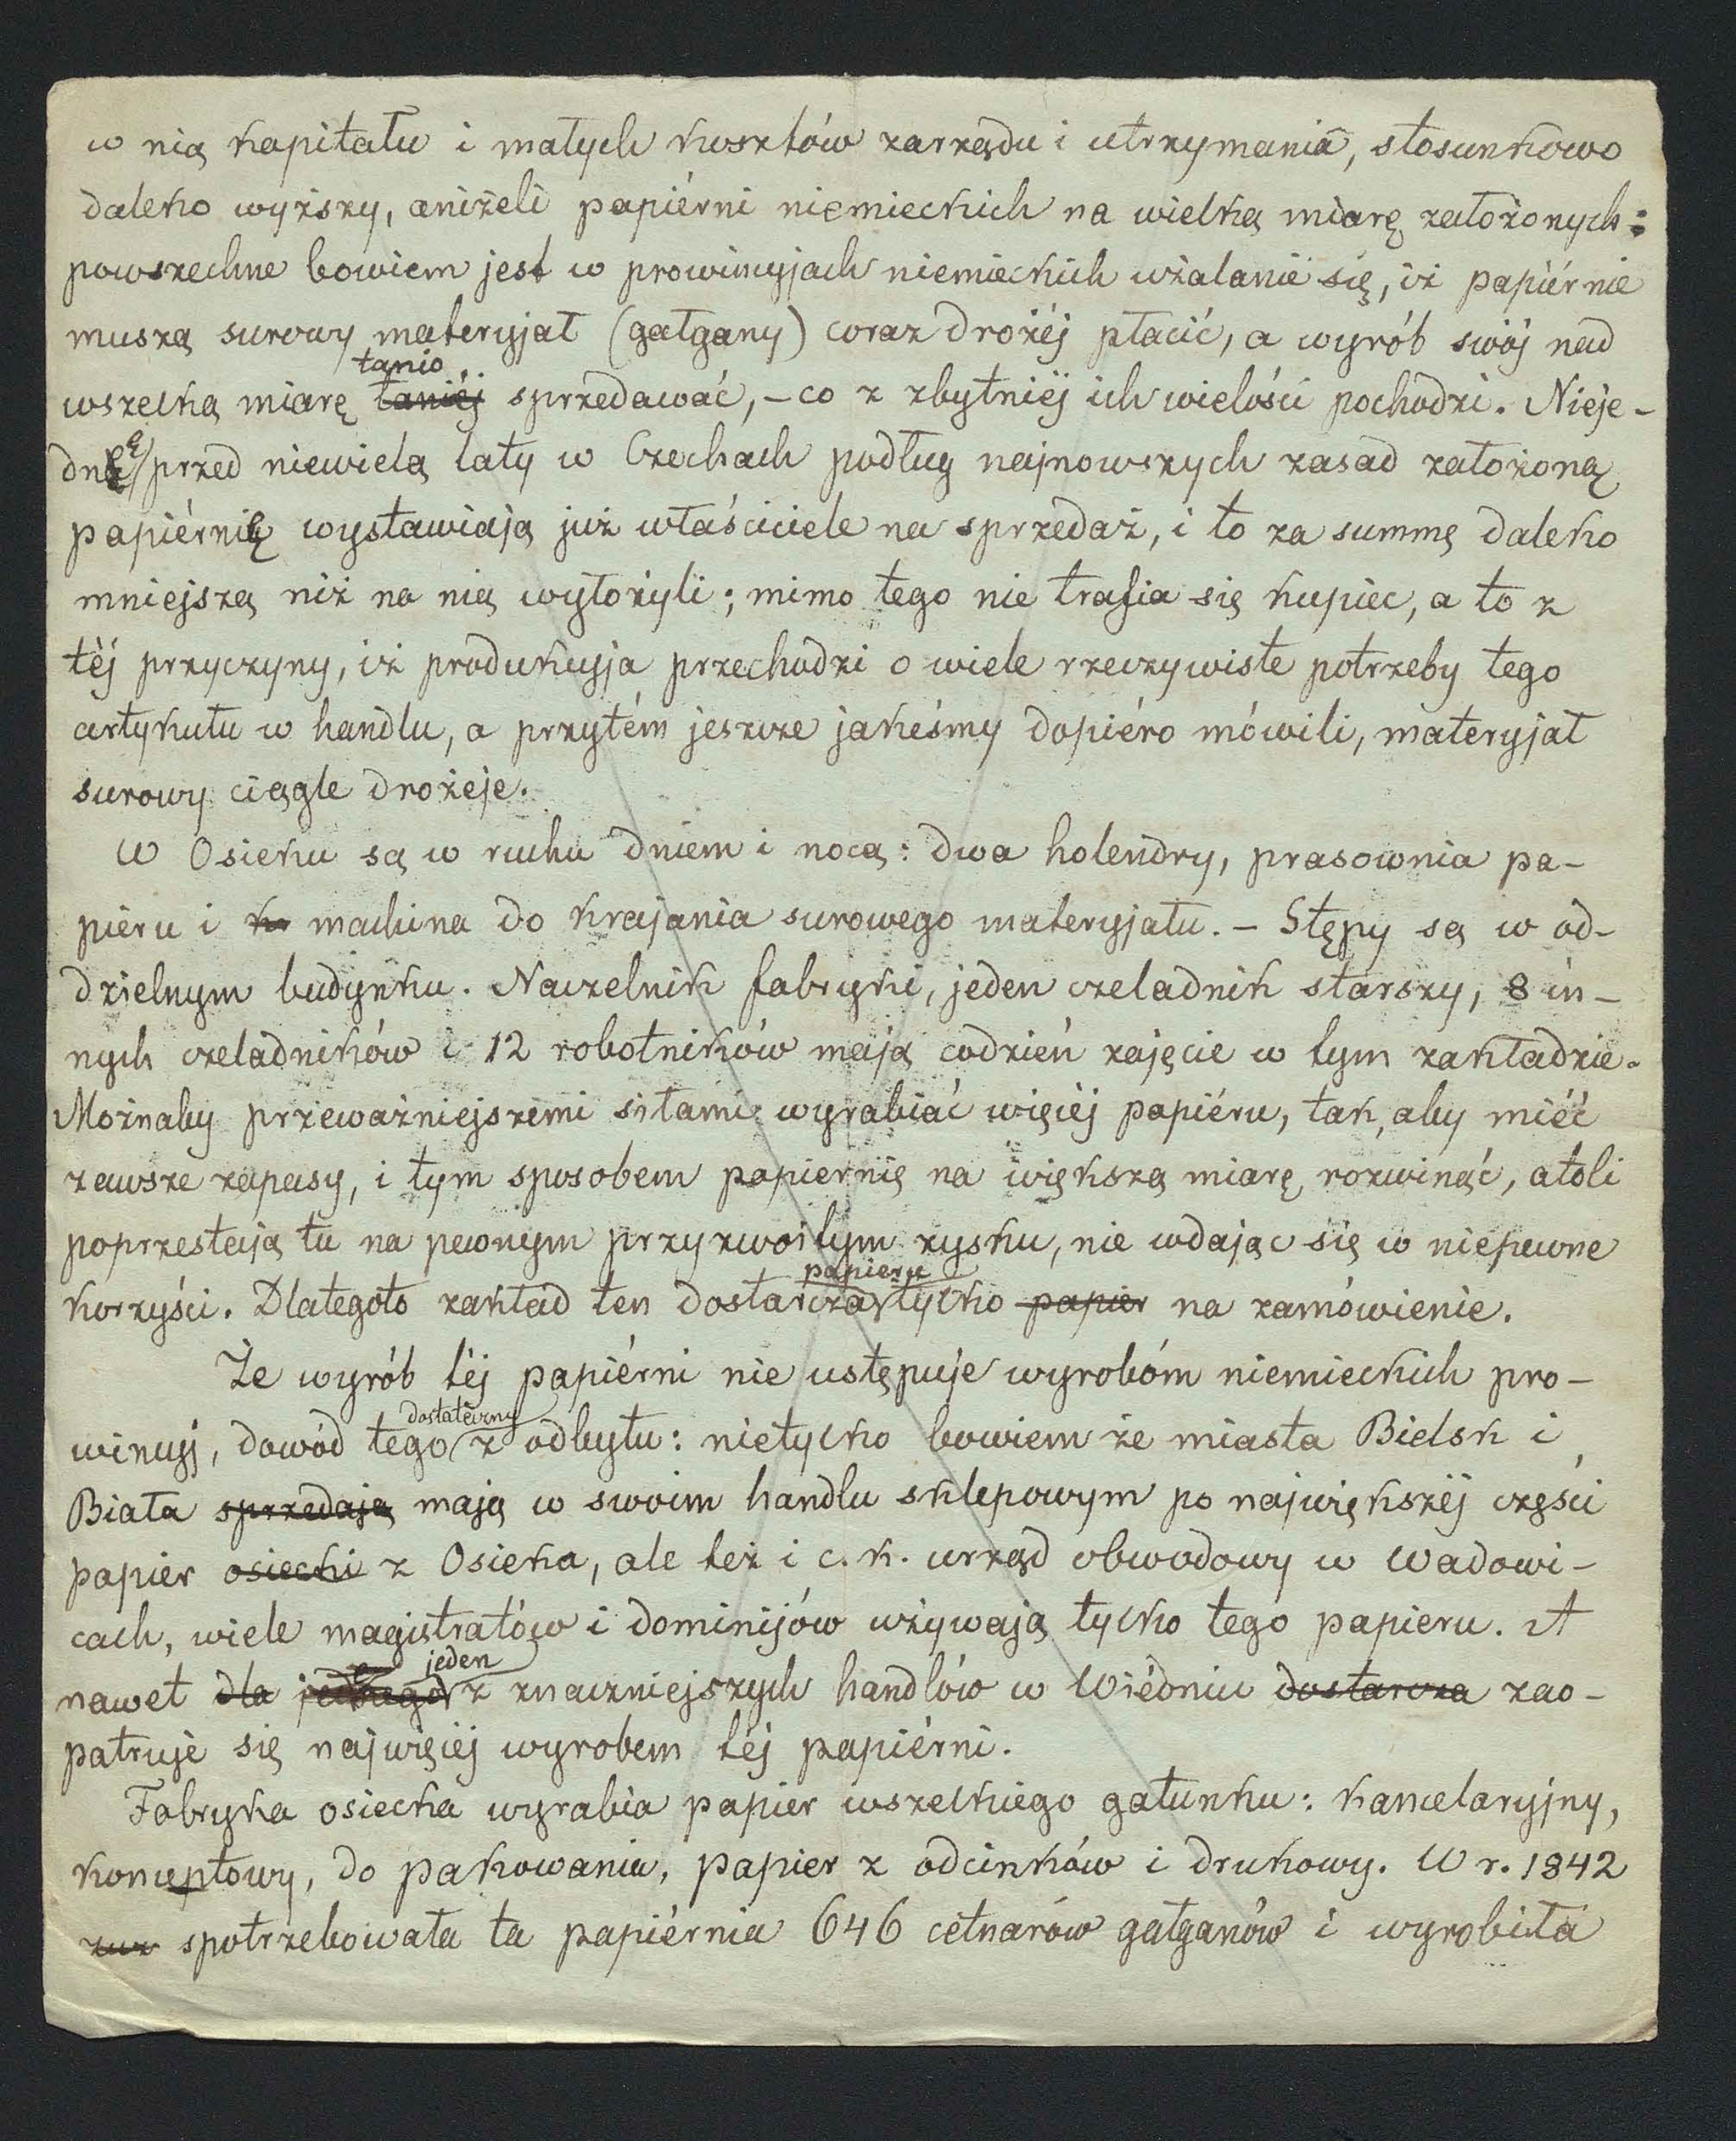 w nią kapitału i małych kosztów zarządu i utrzymania, stosunkowo
daleko wyższy, aniżeli papiérni niemieckich na wielką miarę założonych:
powszechne bowiem jest w prowincyjach niemieckich użalanie się, iż papiérnie
muszą surowy materyjał (gałgany) coraz drożéj płacić, a wyrób swój nad
tanio
wszelką miarę taniéj sprzedawać, – co z zbytniéj ich wielości pochodzi. Nieje-
dnę przed niewielą laty w Czechach podług najnowszych zasad założoną
papiérnię wystawiają już właściciele na sprzedaż, i to za summę daleko
mniejszą niż na nią wyłożyli; mimo tego nie trafia się kupiec, a to z
téj przyczyny, iż produkcyja przechodzi o wiele rzeczywiste potrzeby tego
artykułu w handlu, a przytém jeszcze jakeśmy dopiéro mówili, materyjał
surowy ciągle drożeje.
W Osieku są w ruchu dniem i nocą: dwa holendry, prasownia pa-
pieru i kr machina do krajania surowego materyjału. – Stępy są w od-
dzielnym budynku. Naczelnik fabryki, jeden czeladnik starszy, 8 in-
nych czeladników i 12 robotników mają codzień zajęcie w tym zakładzie.
Możnaby przeważniejszemi siłami wyrabiać więcéj papiéru, tak, aby miéć
zawsze zapasy, i tym sposobem papiernię na większą miarę rozwinąć, atoli
poprzestają tu na pewnym przyzwoitym zysku, nie wdając się w niepewne
papieru
korzyści. Dlategoto zakład ten dostarcza tylko papier na zamówienie.
Że wyrób téj papiérni nie ustępuje wyrobóm niemieckich pro-
dostateczny
wincyj, dowód tego z odbytu: nietylko bowiem że miasta Bielsk i
Biała sprzedają mają w swoim handlu sklepowym po największéj części
papier osiecki z Osieka, ale też i c. k. urząd obwodowy w Wadowi-
cach, wiele magistratów i dominijów używają tylko tego papieru. A
jeden
nawet dla jednego z znaczniejszych handlów w Wiédniu dostarcza zao-
patruje się najwięcéj wyrobem téj papiérni.
Fabryka osiecka wyrabia papier wszelkiego gatunku: kancelaryjny,
konceptowy, do pakowania, papier z odcinków i drukowy. W r. 1842
spotrzebowała ta papiérnia 646 cetnarów gałganów i wyrobiła